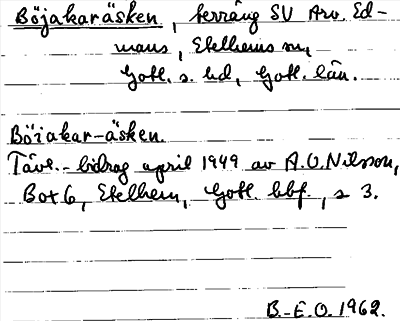 Böjakaräsken, terräng SV Arv. Ed-
mans, Etelhems sn,
Gotl. s. hd, Gotl. län.
Böiakar-äsken.
Tävl.-bidrag april 1949 av A.O. Nilsson,
Box 6, Etelhem, Gotl. bbf., s 3.
B.-E.O. 1962.